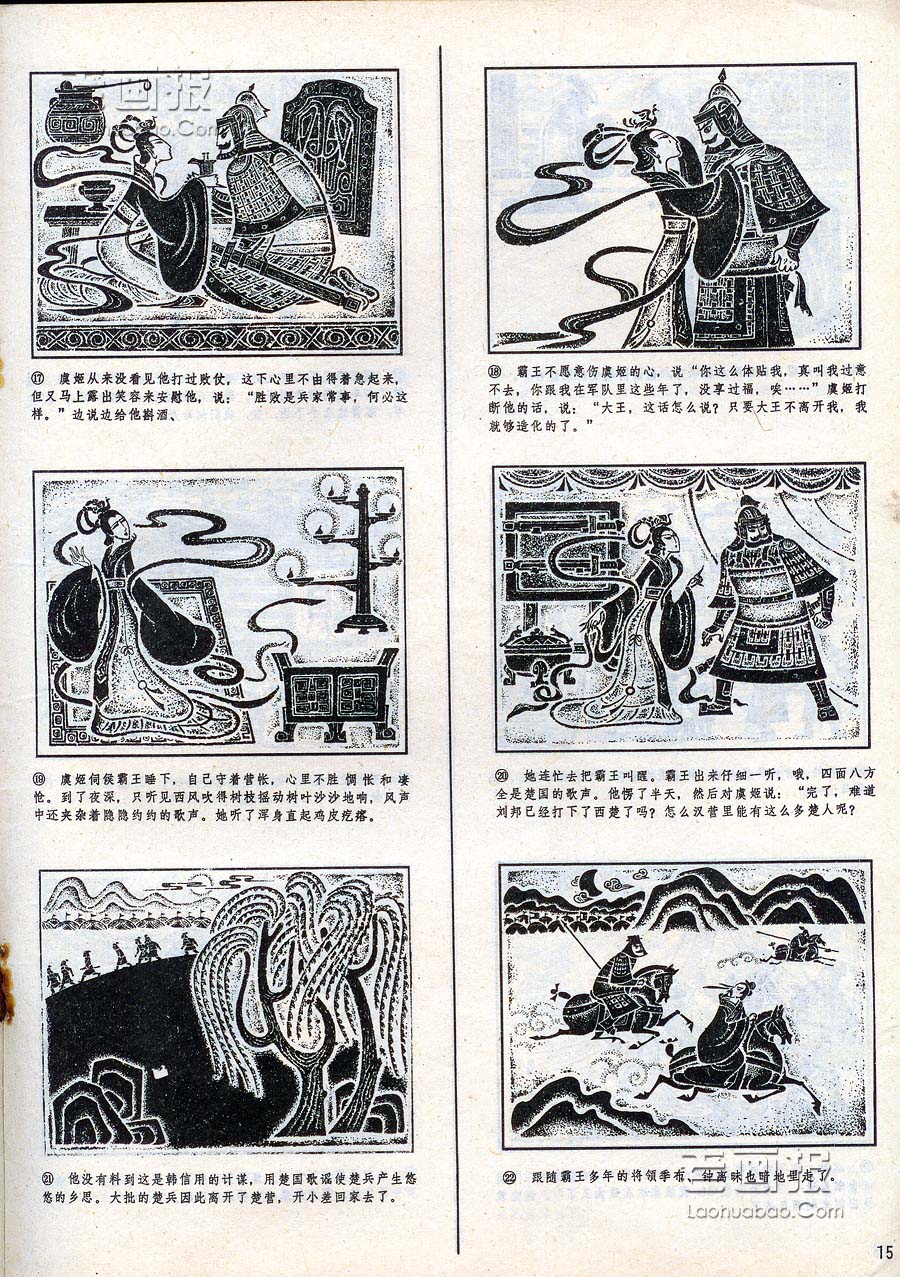 老画报
Laohuabao.Com
⑰ 虞姬从来没看见他打过败仗，这下心里不由得着急起来，
但又马上露出笑容来安慰他，说：“胜败是兵家常事，何必这
样。”边说边给他斟酒、
⑱ 霸王不愿意伤虞姬的心，说“你这么体贴我，真叫我过意
不去，你跟我在军队里这些年了，没享过福，唉……”虞姬打
断他的话，说：“大王，这话怎么说？只要大王不离开我，我
就够造化的了。”
⑲ 虞姬伺侯霸王睡下，自己守着营帐，心里不胜惆怅和凄
怆。到了夜深，只听见西风吹得树枝摇动树叶沙沙地响，风声
中还夹杂着隐隐约约的歌声。她听了浑身直起鸡皮疙瘩。
⑳ 她连忙去把霸王叫醒。霸王出来仔细一听，哦，四面八方
全是楚国的歌声。他愣了半天，然后对虞姬说：“完了，难道
刘邦已经打下了西楚了吗？怎么汉营里能有这么多楚人呢？
㉑ 他没有料到这是韩信用的计谋，用楚国歌谣使楚兵产生悠
悠的乡思。大批的楚兵因此离开了楚营，开小差回家去了。
㉒ 跟随霸王多年的将领季布、钟离昧也暗地里走了。
老画报
Laohuabao.Com
15